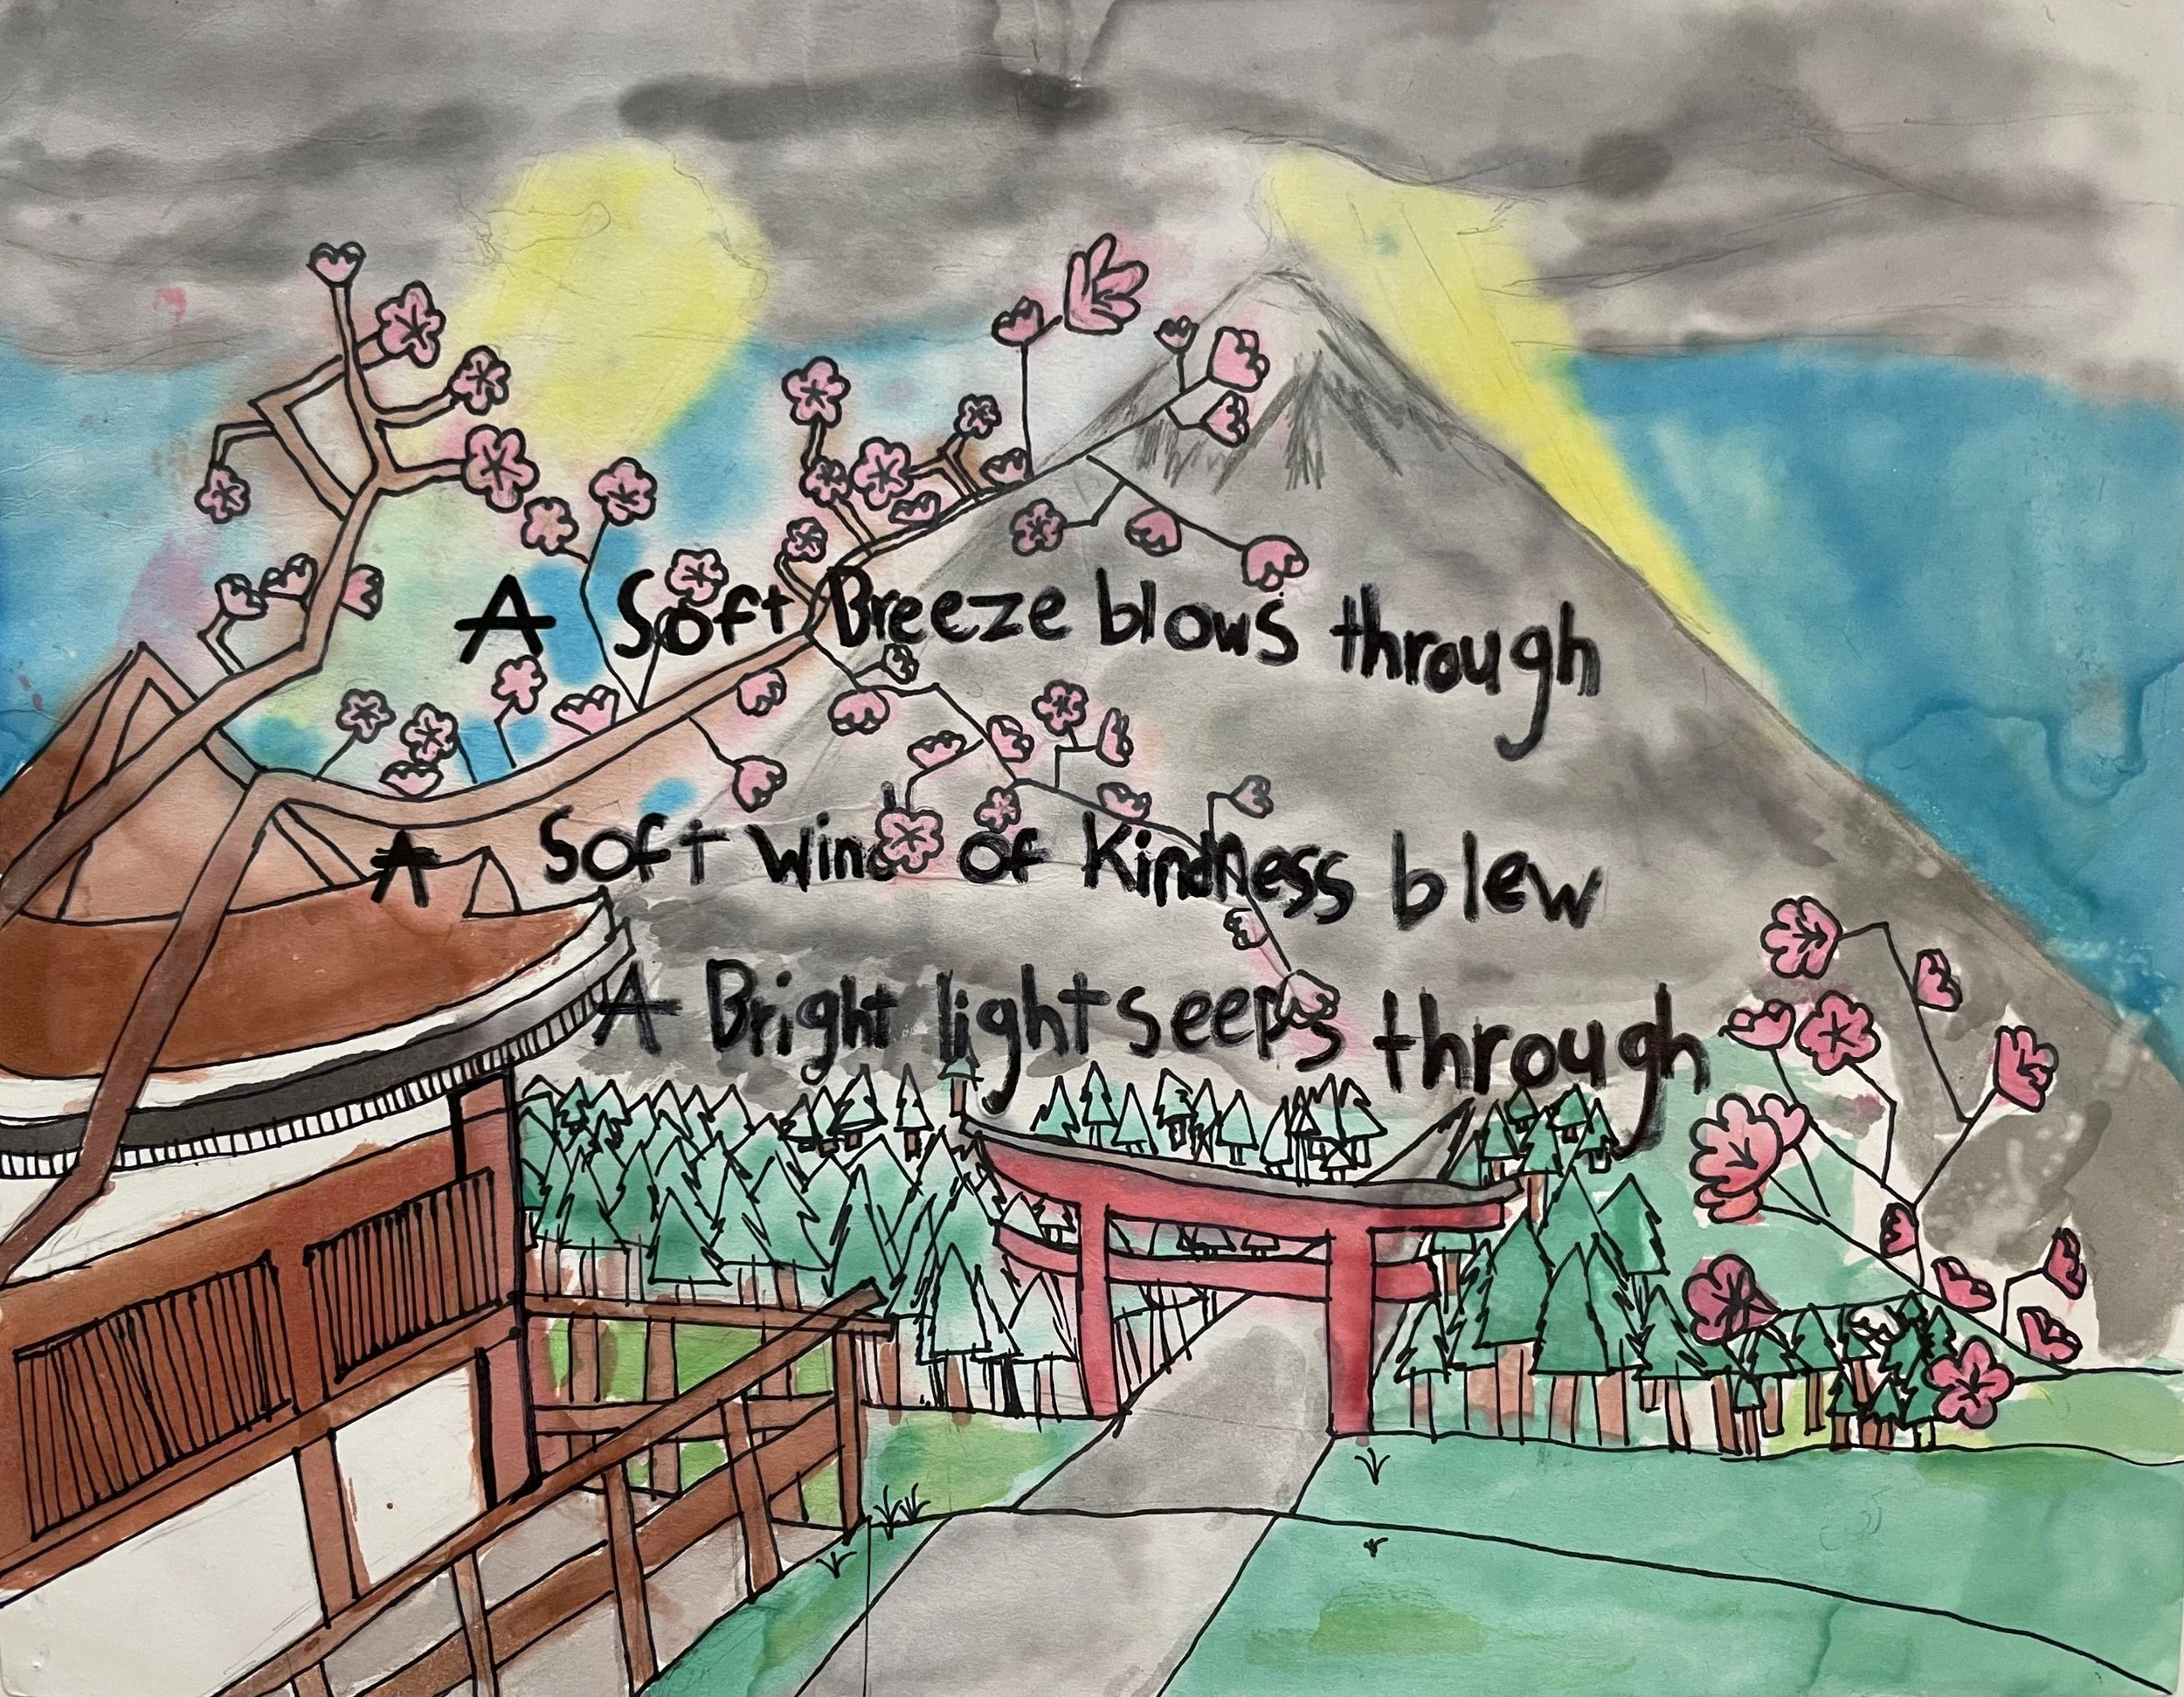 A Soft Breeze blows through
A Soft Wind of Kindness blew
A Bright light seeps through